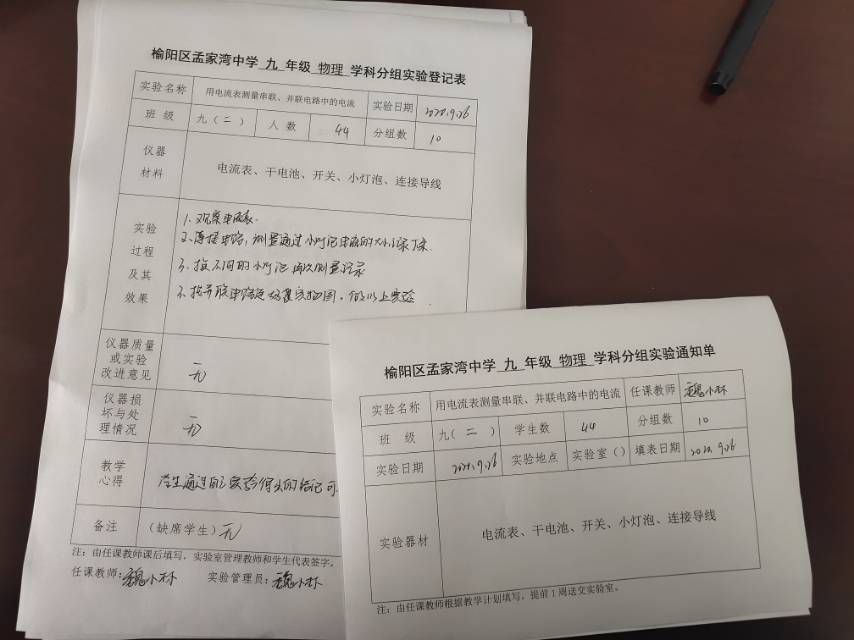 榆阳区孟家湾中学 九 年级 物理 学科分组实验登记表
实验名称 用电流表测量串联、并联电路中的电流 实验日期 2020.9.26
班 级 九（二） 人 数 44 分组数 10
仪器
材料
电流表、干电池、开关、小灯泡、连接导线
实验
过程
及其
效果
1、观察电流表.
2、连接电路，测量通过小灯泡电流的大小记录下来
3、换不同的小灯泡再次测量记录
仪器质量
或实验
改进意见
无
仪器损
坏与处
理情况
无
教学
心得
学生通过自己实验得出的结论可
备注 （缺席学生）无
注：由任课教师课后填写，实验室管理教师和学生代表签字。
任课教师：魏小林 实验管理员：魏小林
榆阳区孟家湾中学 九 年级 物理 学科分组实验通知单
实验名称 用电流表测量串联、并联电路中的电流 任课教师 魏小林
班 级 九（ 二 ） 学生数 44 分组数 10
实验日期 2020.9.26 实验地点 实验室（） 填表日期 2020.9.26
实验器材 电流表、干电池、开关、小灯泡、连接导线
注：由任课教师根据教学计划填写，提前1周送交实验室。